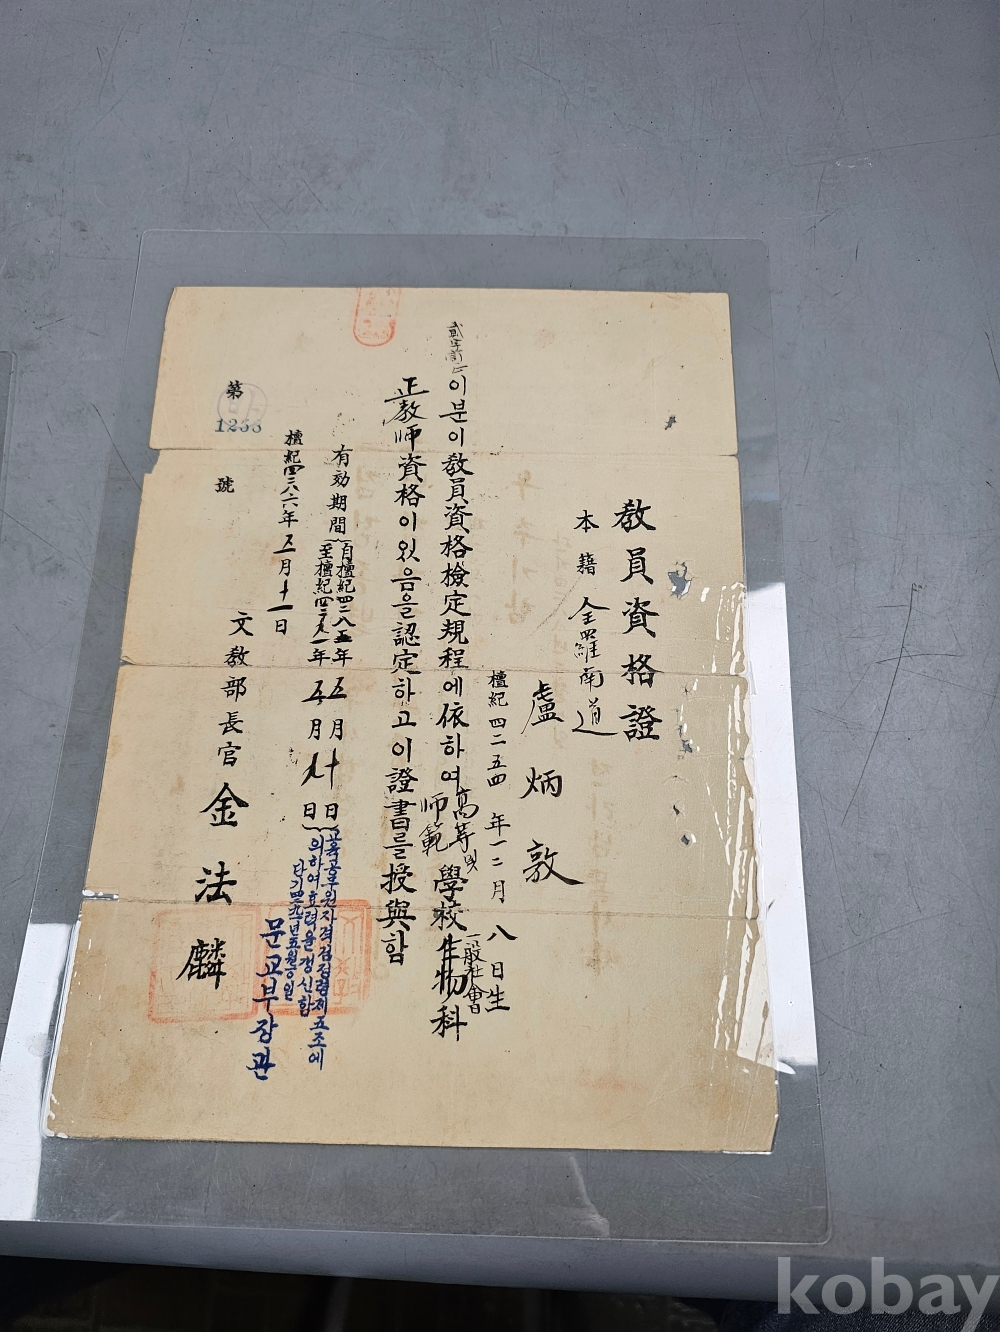 教員資格證
本籍 全羅南道
盧炳敦
檀紀四二五四年一二月八日生
이분이敎員資格檢定規程에依하여高等및師範學校生物科
一般社會
正敎師資格이있음을認定하고이證書를授與함
有効期間
自檀紀四二八五年五月十日
至檀紀四二九一年五月 日
교육공무원자격검정령제五조에
의하여효력을갱신함
문교부장관
檀紀四二八六年五月十一日
文敎部長官 金法麟
第 1256 號
kobay